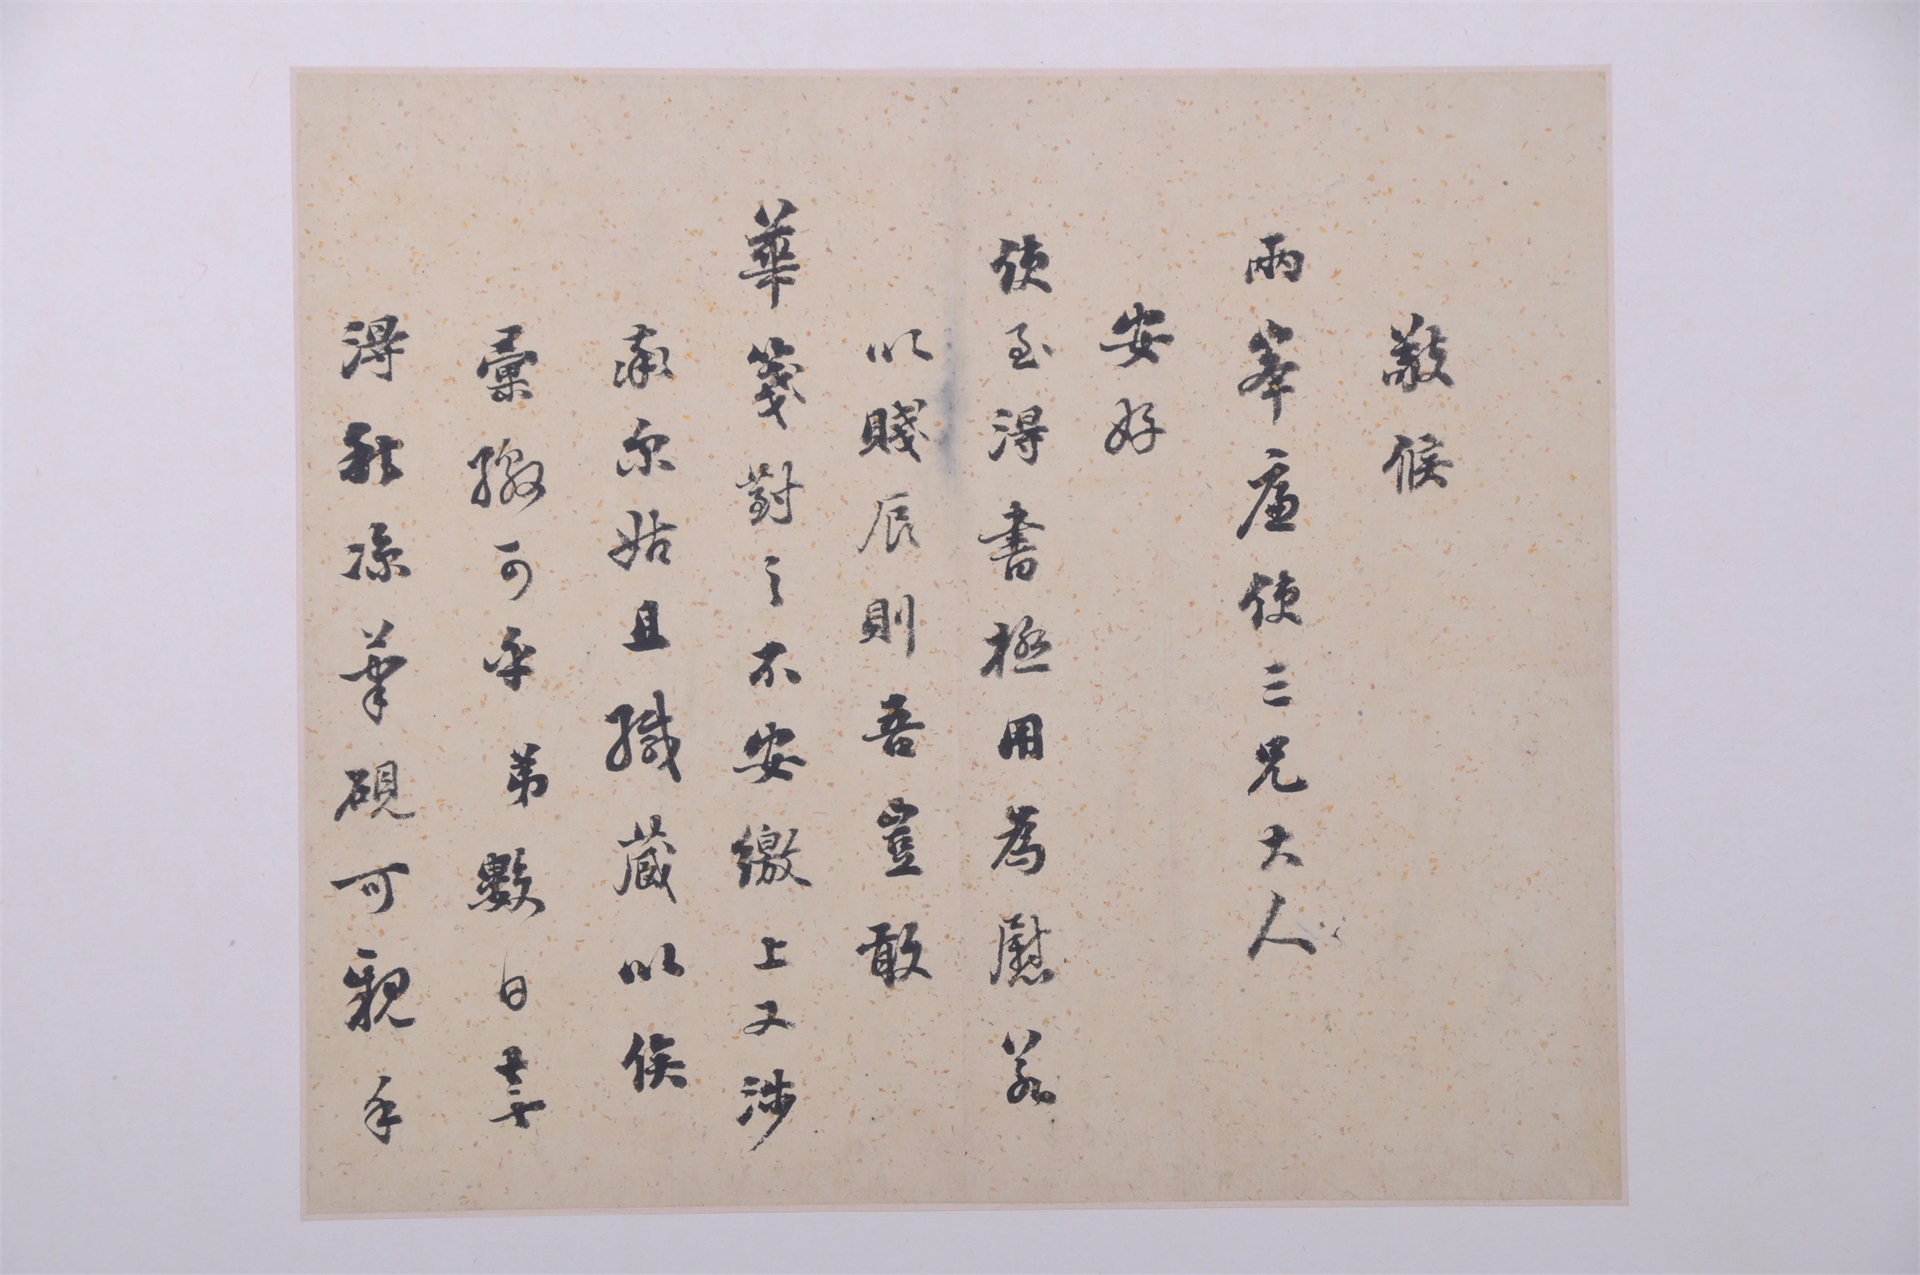 敬候
兩峯廉使三兄大人
安好
使至得書極用為慰若
以賤辰則吾豈敢
華箋對之不安繳上又涉
爾姑且緘藏以俟
彙繳可乎弟數日
得秋涼筆硯可親手